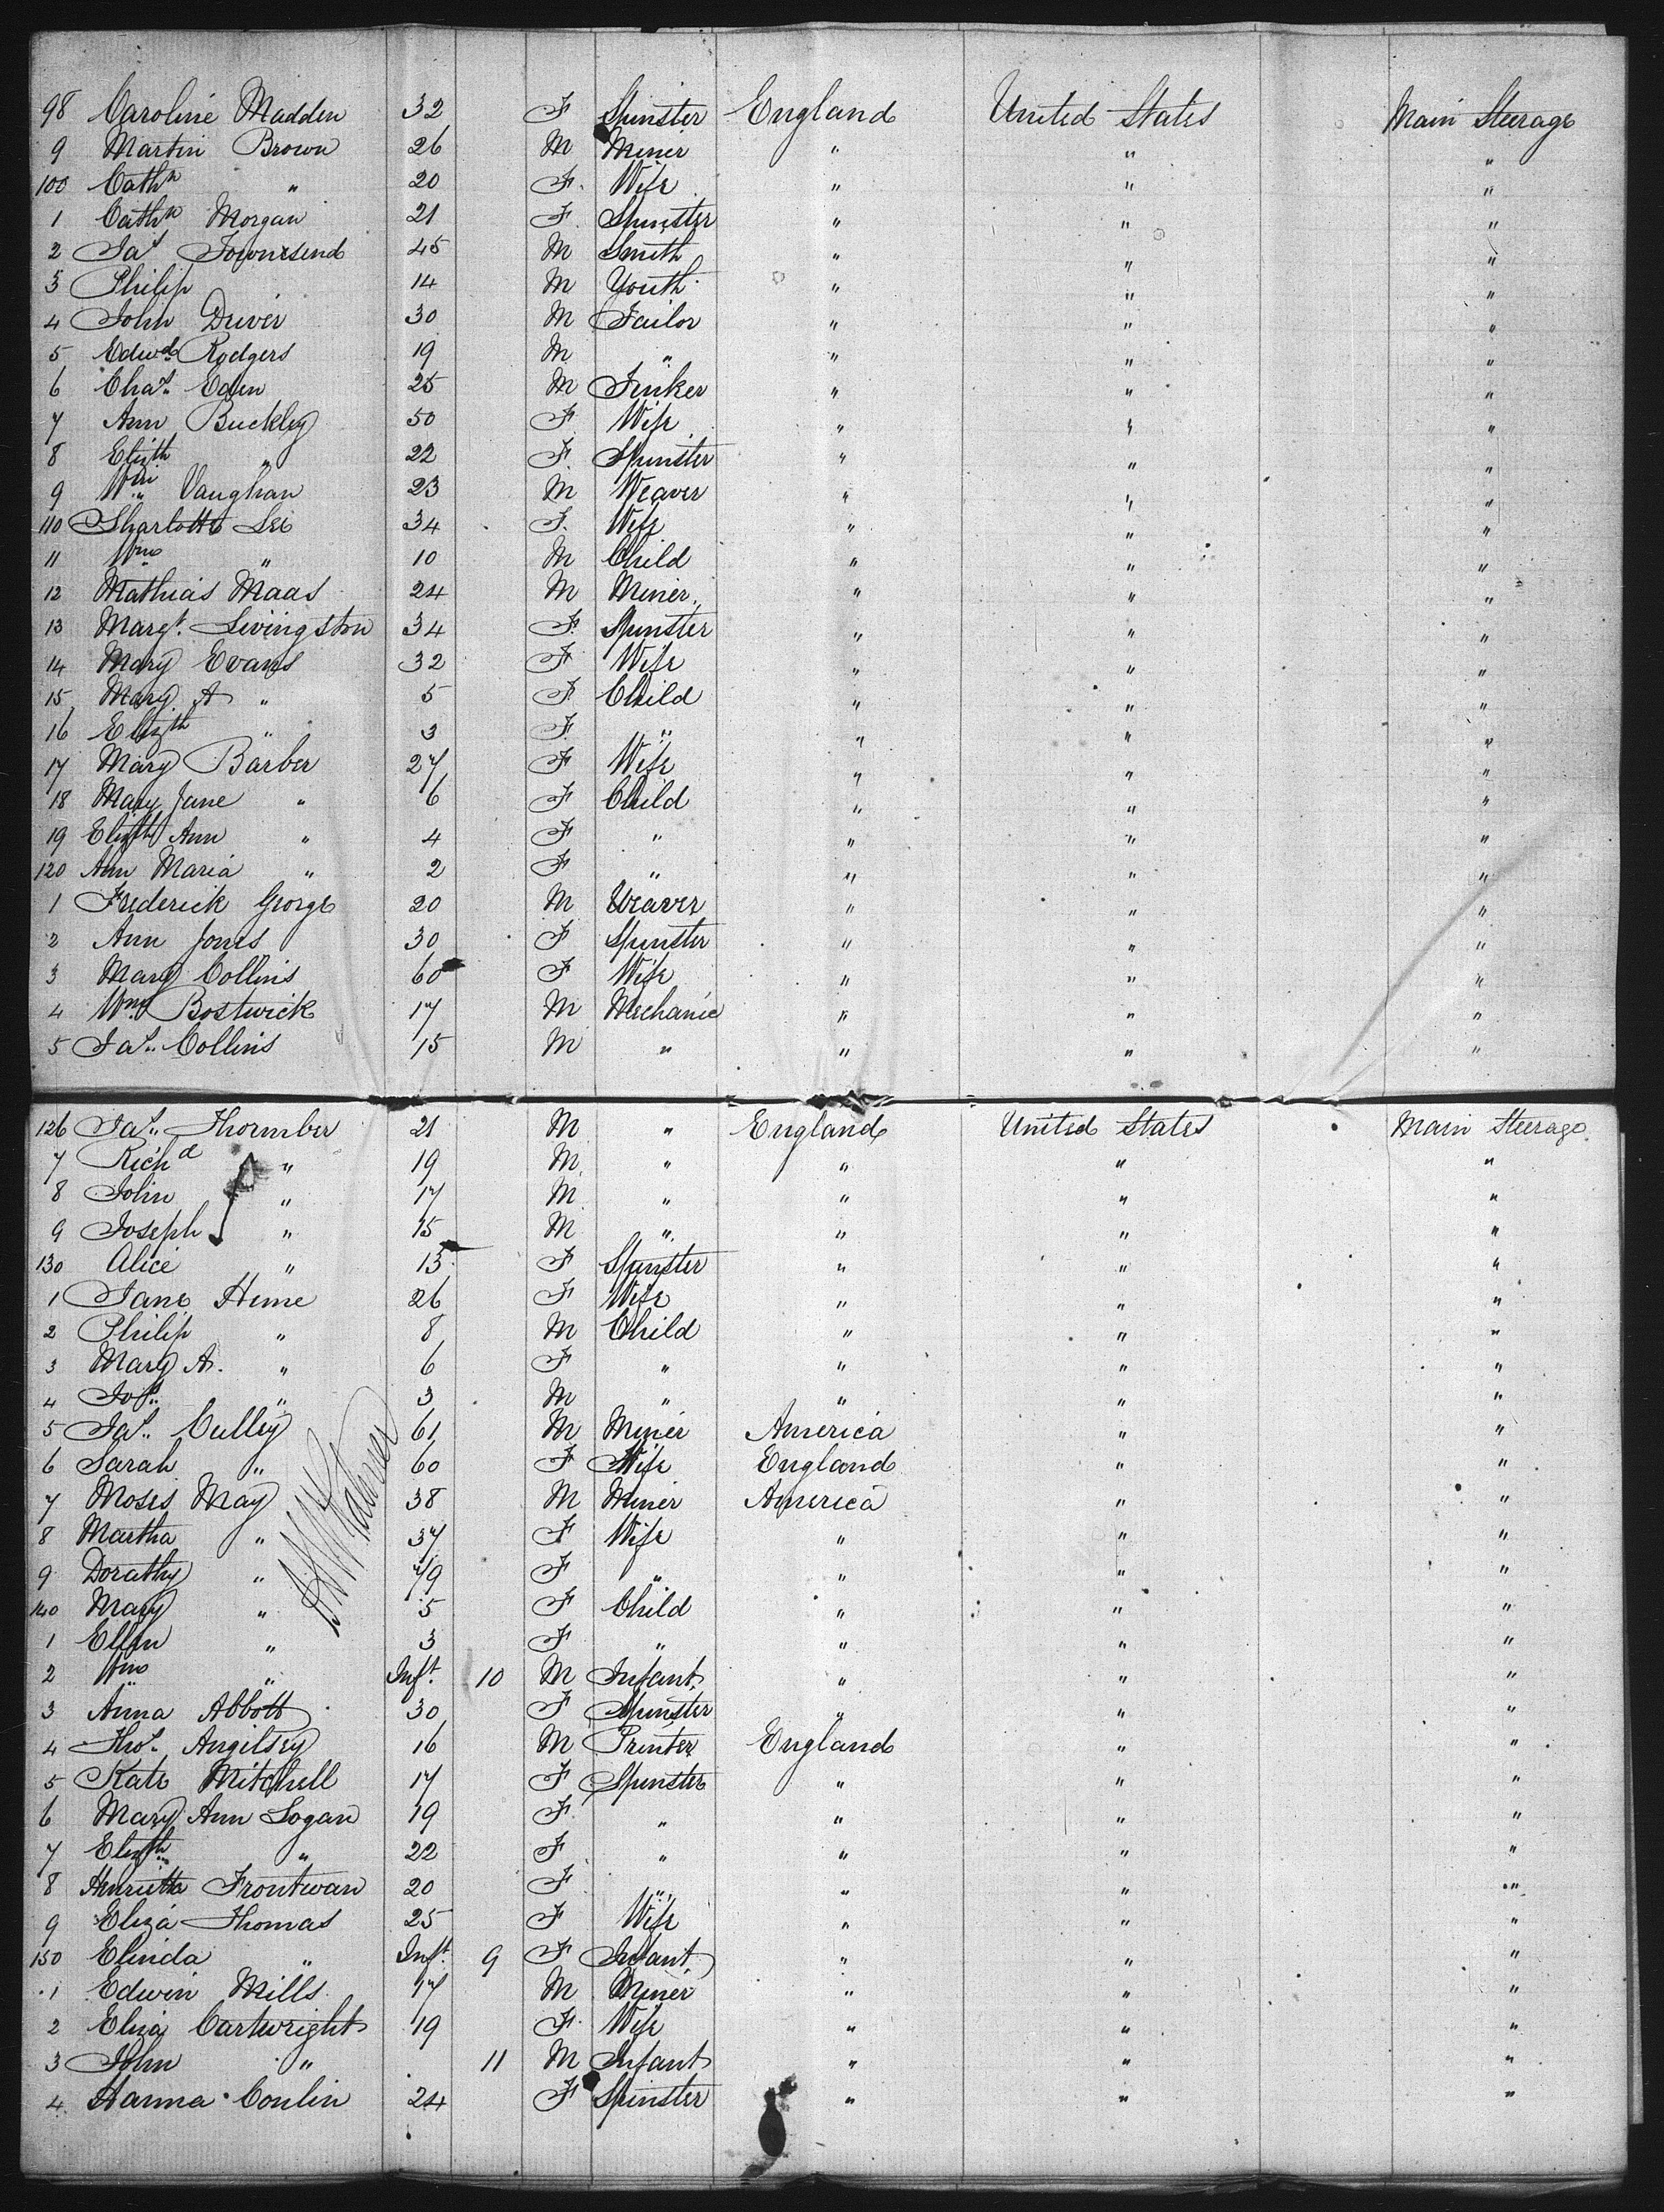 98 Caroline Madden 32 F Spinster England United States Main Steerage
9 Martin Brown 26 M Miner " " "
100 Cathn " 20 F. Wife " " "
1 Cathn Morgan 21 F Spinster " " "
2 Jas Townsend 45 M Smith " " "
3 Philip 14 M Youth " " "
4 John Driver 30 M Tailor " " "
5 Edwd Rodgers 19 M " " " "
6 Chas. Eden 25 M Tinker " " "
7 Ann Buckley 50 F Wife " " "
8 Elizth " 22 F. Spinster " " "
9 Wm Vaughan 23 M Weaver " " "
110 Sharlotte Lee 34 F. Wife " " "
11 Wm " 10 M Child " " "
12 Mathias Maas 24 M Miner " " "
13 Margt. Livingston 34 F. Spinster " " "
14 Mary Evans 32 F Wife " " "
15 Mary A " 5 F Child " " "
16 Elizth " 3 F. " " " "
17 Mary Barber 27 F Wife " " "
18 Mary Jane " 6 F Child " " "
19 Elizth Ann " 4 F " " " "
120 Ann Maria " 2 F " " " "
1 Frederick George 20 M Weaver " " "
2 Ann Jones 30 F Spinster " " "
3 Mary Collins 60 F Wife " " "
4 Wm Bostwick 17 M Mechanic " " "
5 Jas. Collins 15 M " " " "
126 Jas. Thornber 21 M " England United States Main Steerage
7 Richd " 19 M " " " "
8 John " 17 M " " " "
9 Joseph " 15 M " " " "
130 Alice " 13 F Spinster " " "
1 Jane Hime 26 F Wife " " "
2 Philip " 8 M Child " " "
3 Mary A. " 6 F " " " "
4 Jos. " 3 M " " " "
5 Jas. Culley 61 M Miner America " "
6 Sarah " 60 F Wife England " "
7 Moses May 38 M Miner America " "
8 Martha " 37 F Wife " " "
9 Dorathy " 79 F " " " "
140 Mary " 5 F Child " " "
1 Ellen " 3 F " " " "
2 Wm " Inft. 10 M Infant " " "
3 Anna Abbott 30 F Spinster " " "
4 Thos. Angilsey 16 M Printer England " "
5 Kate Mitchell 17 F Spinster " " "
6 Mary Ann Logan 19 F " " " "
7 Elizth " 22 F " " " "
8 Henrietta Frontwan 20 F " " " "
9 Eliza Thomas 25 F Wife " " "
150 Elinda " Inft. 9 F Infant " " "
1 Edwin Mills 17 M Miner " " "
2 Eliza Cartwright 19 F Wife " " "
3 John " 11 M Infant " " "
4 Hanna Conlin 24 F Spinster " " "